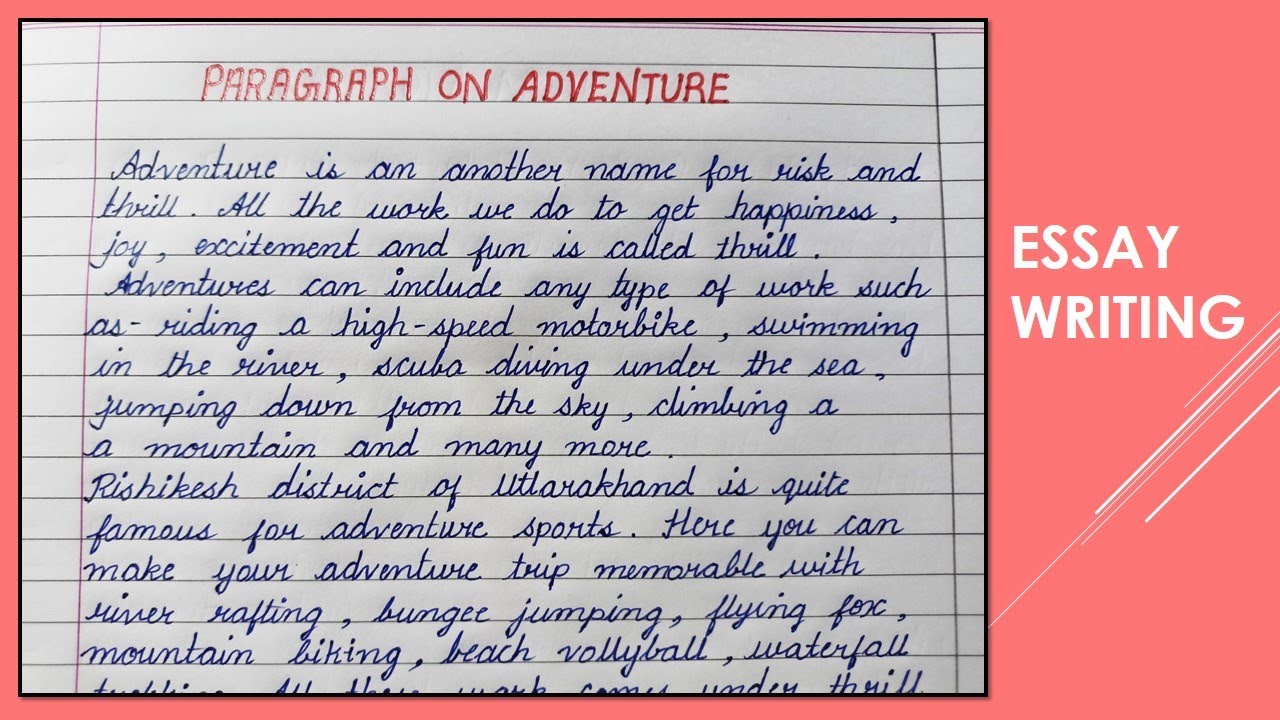 PARAGRAPH ON ADVENTURE
Adventure is an another name for risk and
thrill. All the work we do to get happiness,
joy, excitement and fun is called thrill.
Adventures can include any type of work such
as- riding a high-speed motorbike, swimming
in the river, scuba diving under the sea,
jumping down from the sky, climbing a
a mountain and many more.
Rishikesh district of Uttarakhand is quite
famous for adventure sports. Here you can
make your adventure trip memorable with
river rafting, bungee jumping, flying fox,
mountain biking, beach vollyball, waterfall
trekking. All these work comes under thrill
ESSAY
WRITING